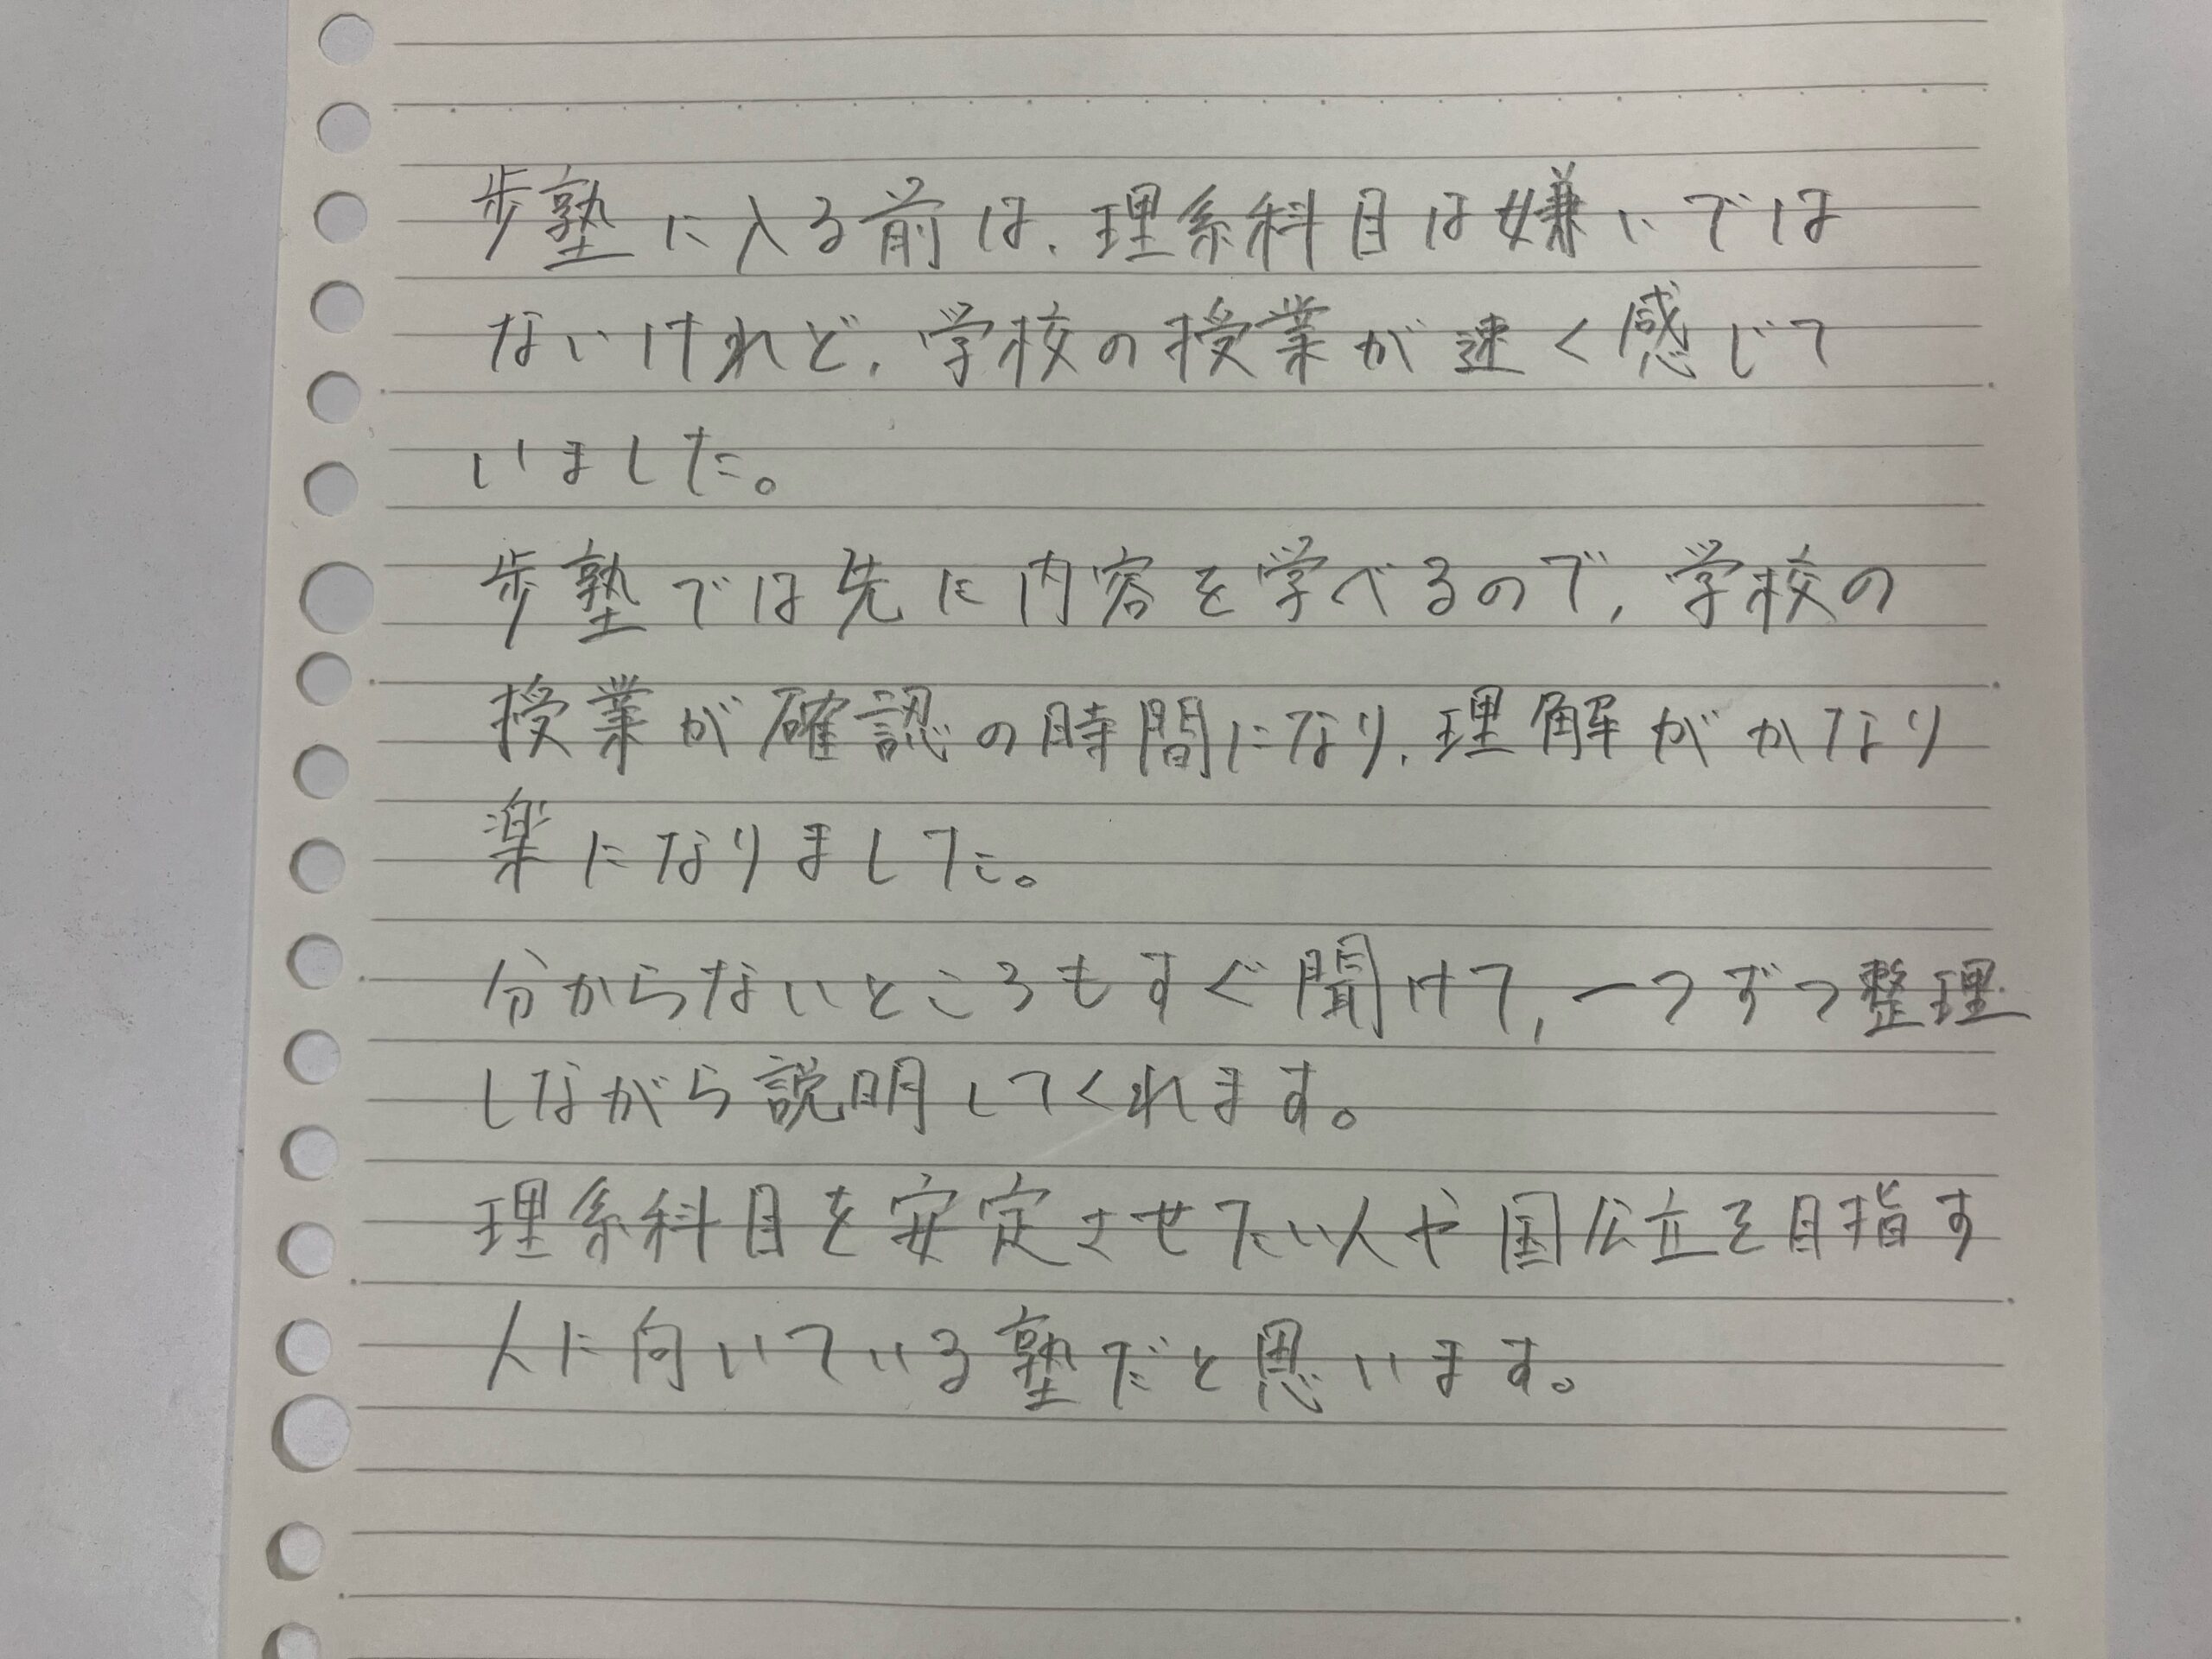 歩塾に入る前は、理系科目は嫌いでは
ないけれど、学校の授業が速く感じて
いました。
歩塾では先に内容を学べるので、学校の
授業が確認の時間になり、理解がかなり
楽になりました。
分からないところもすぐ聞けて、一つずつ整理
しながら説明してくれます。
理系科目を安定させたい人や国公立を目指す
人に向いている塾だと思います。